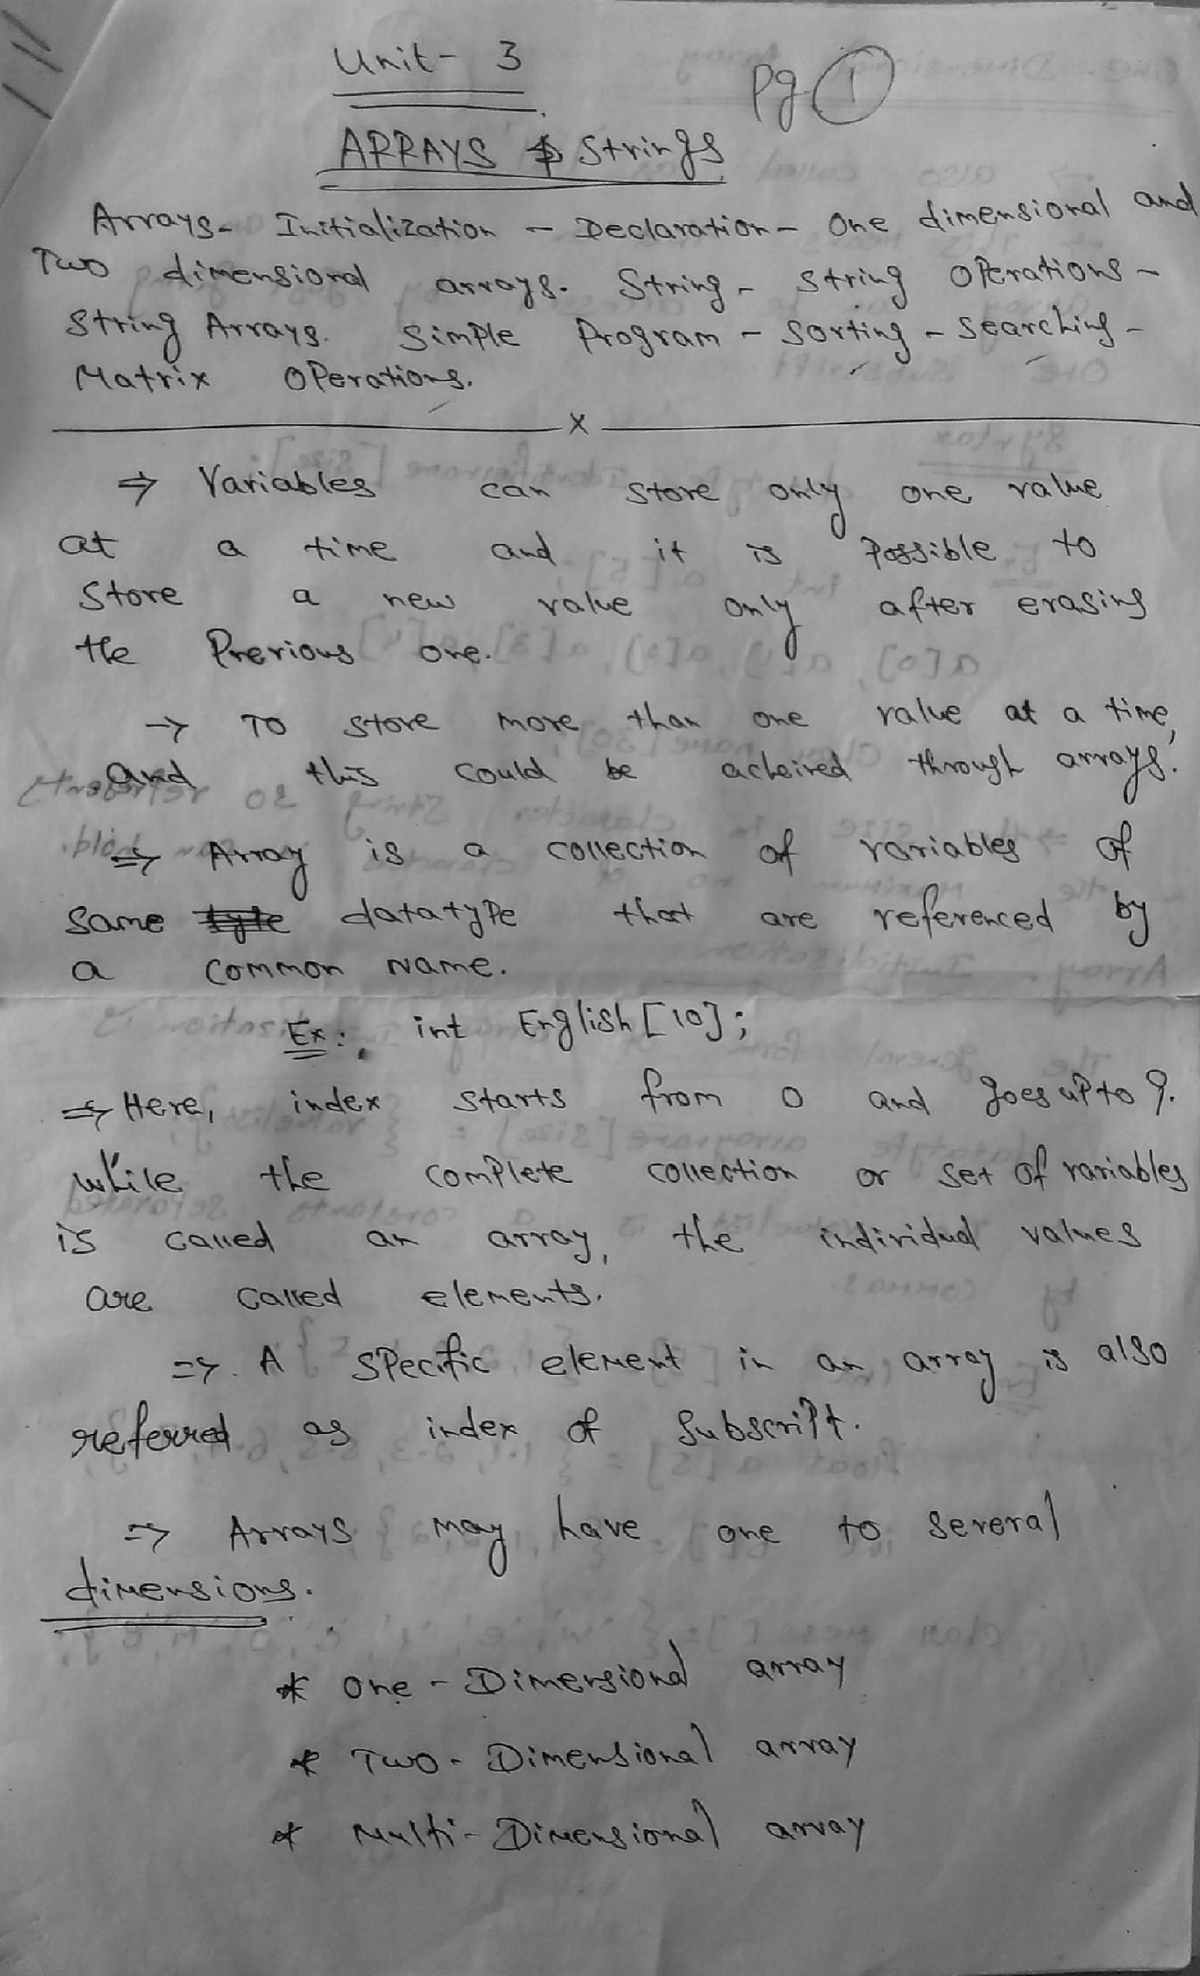 Unit - 3
Pg 1
ARRAYS & Strings
Arrays - Initialization - Declaration - One dimensional and
Two dimensional arrays. String - String Operations -
String Arrays. Simple Program - Sorting - Searching -
Matrix Operations.
x
⇒ Variables can store only one value
at a time and it is Possible to
Store a new value only after erasing
the Previous one.
→ To store more than one value at a time,
and this could be acheived through arrays.
⇒ Array is a collection of variables of
same datatype that are referenced by
a common name.
Ex: int English[10];
⇒ Here, index starts from 0 and goes upto 9.
while the complete collection or set of variables
is called an array, the individual values
are called elements.
⇒ A Specific element in an array is also
referred as index of Subscript.
⇒ Arrays may have one to several
dimensions.
* One - Dimensional array
* Two - Dimensional array
* Multi - Dimensional array